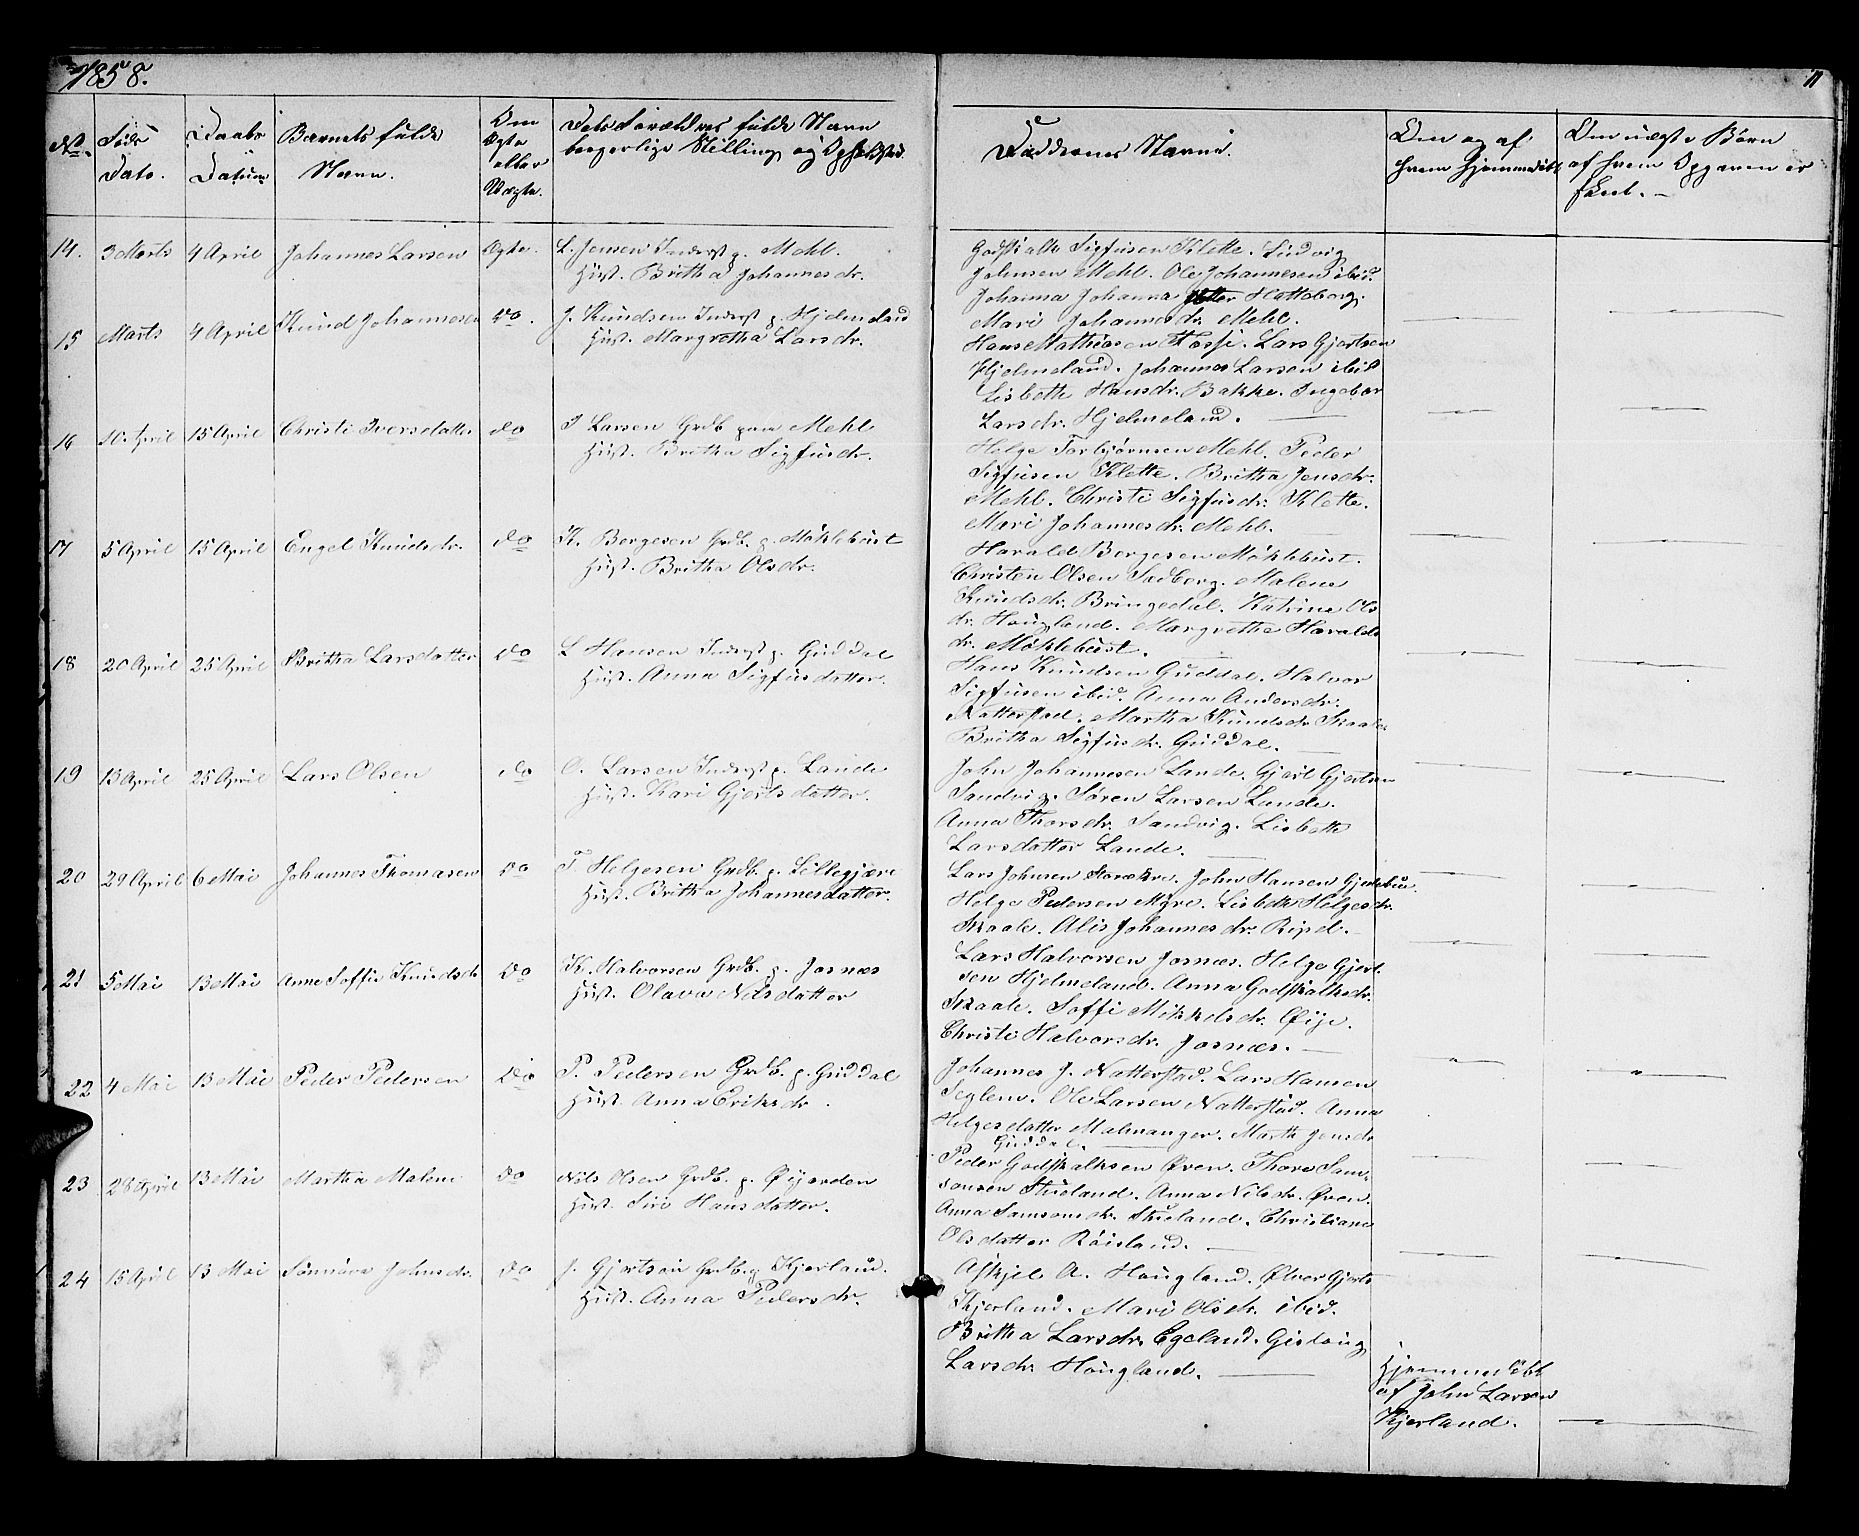 1858.
11
No.
Døbs
Daabs
Barnets fulde
Om
Dets Forældres fulde Navn
Faddernes Navne.
Om og af
Om uægte Børn
Dato.
Datum
Navn.
Ægte
borgerlige Stilling og Opholdsted
hvem hjemmedøbt
af hvem Opgaven er
eller
Uægte.
14. 3 Marts 4 April Johannes Larsen Ægte. L. Jensen Inderst p. Mehl.
Hust. Britha Johannesdr.
Godskalk Sigfusen Klette. Ludvig
Johnsen Mehl. Ole Johannesen ibid.
Johanna Johanna Hatteberg.
Mari Johannesdr. Mehl.
15 Marts 4 April Knud Johannesen do. J. Knudsen Inderst p. Hjelmeland
Hust. Margretha Larsdr.
Hans Mathiasen Fosse. Lars Gjertsen
Hjelmeland. Johannes Larsen ibid
Lisbeth Hansdr. Bakke. Ingebor
Larsdr. Hjelmeland.
16 10. April 15 April Christi Iversdatter do I Larsen Grdb paa Mehl
Hust. Britha Sigfusdr.
Helge Torbjørnsen Mehl. Peder
Sigfusen Klette. Britha Jensdr.
Mehl. Christi Sigfusdr. Klette.
Mari Johannesdr. Mehl.
17 5 April 15 April Engel Knudsdr. do K. Borgesen Grdb. p. Möklebust
Hust. Britha Olsdr.
Harald Borgesen Möklebust.
Christen Olsen Solberg. Malene
Knudsdr. Bringedal. Katrine Ols
dr. Hougland. Margrethe Haralds
dr. Möklebust.
18 20 April 25 April Britha Larsdatter do L Hansen Inderst p. Guddal
Hust. Anna Sigfusdatter.
Hans Knudsen Guddal. Halvor
Sigfusen ibid. Anna Andersdr.
Natterstad. Martha Knudsdr. Skaale
Britha Sigfusdr. Guddal.
19 13 April 25 April Lars Olsen do O. Larsen Inderst p. Lande
Hust. Kari Gjertsdatter.
John Johannesen Lande. Gjert Gjertsen
Sandvig. Søren Larsen Lunde.
Anna Thorsdr. Sandvig. Lisbeth
Larsdatter Lande.
20 29 April 6 Mai Johannes Thomasen do T. Helgesen Grdb. p. Lillegjære
Hust. Britha Johannesdatter.
Lars Johnsen. John Hansen
Helge Pedersen Myre. Lisbeth Helgesdr.
Skaale. Alis Johannesdr. Ripel.
21 5 Mai 13 Mai Anne Soffie Knudsdr do K. Halvorsen Grdb. p. Josnæs
Hust. Olava Nilsdatter
Lars Halvorsen Josnæs. Helge Gjert
sen Hjelmeland. Anna Godskalksdr.
Skaale. Soffi Mikkelsdr. Øije.
Christi Halvorsdr. Josnæs.
22 4 Mai 13 Mai Peder Pedersen do P. Pedersen Grdb. p. Guddal
Hust. Anna Eriksdr.
Johannes J. Natterstad. Lars Hansen
Seglem. Ole Larsen Natterstad. Anna
Helgesdatter Malmanger. Marth Jensdr
Guddal.
23 28 April 13 Mai Martha Malene do Nils Olsen Grdb. p. Öijorden
Hust. Siri Hansdatter.
Peder Godskalksen Øven. Thore Sam-
sonsen Stueland. Anna Nilsdr. Øven.
Anna Samsonsdr. Stueland. Christiane
Olsdatter Röisland.
24 15 April 13 Mai Sønnöva Johnsdr. do J. Gjertsen Grdb. p. Kjerland.
Hust. Anna Pedersdr.
Askjel A. Hougland. Ølver Gjerts
Kjerland. Mari Olsdr. ibid.
Britha Larsdr. Egeland. Gislaug
Larsdr. Hougland.
Hjemmedøbt
af John Larsen
Kjerland.